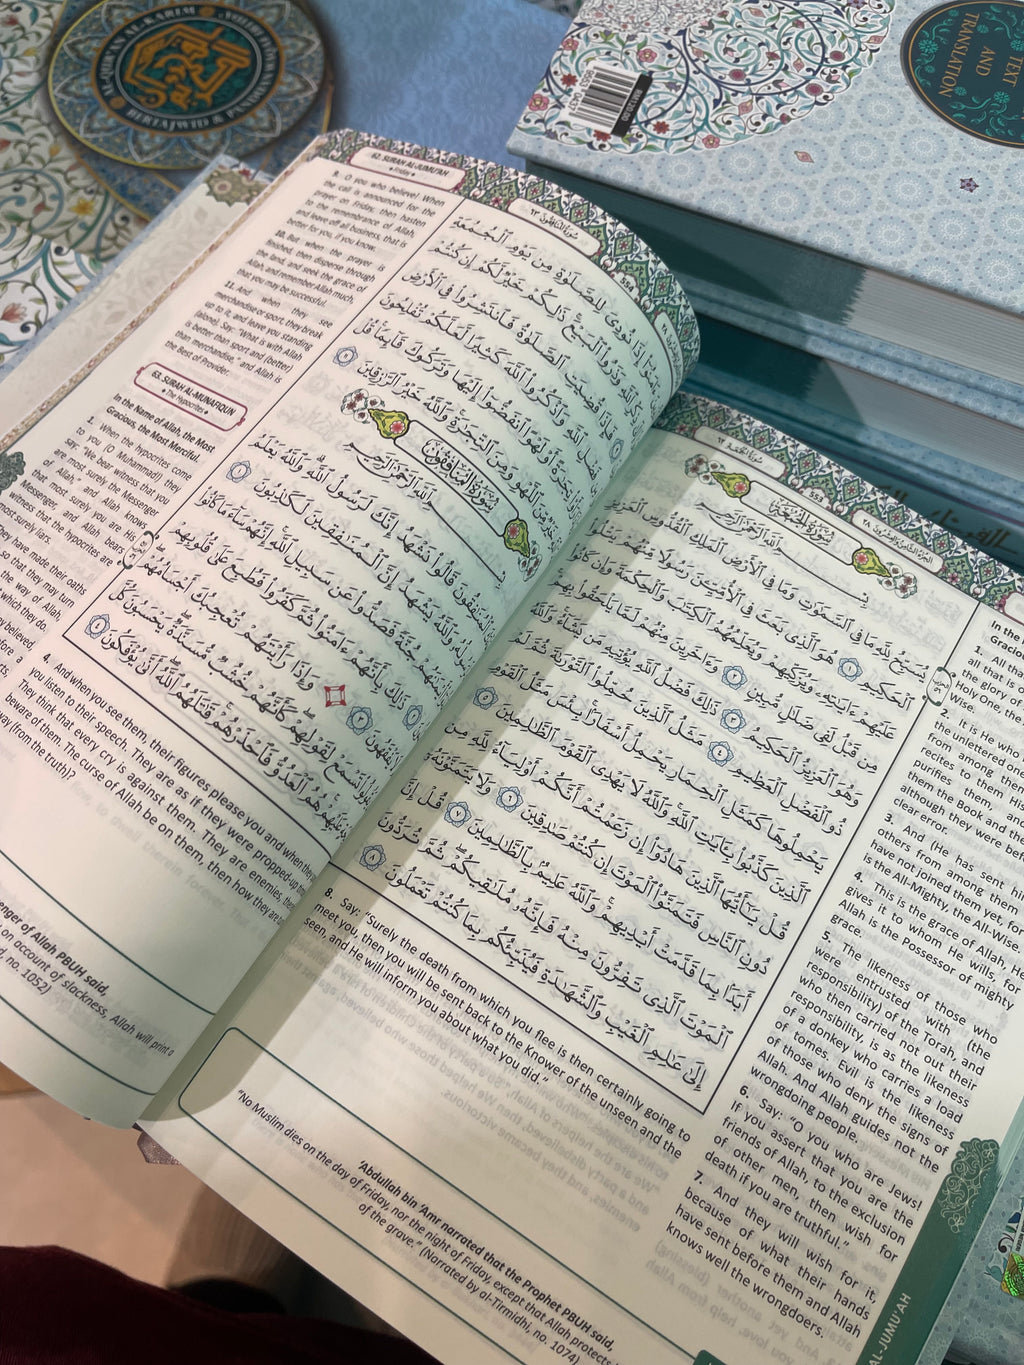 TEXT
AND
TRANSLATION
AL-QUR'AN AL-KARIM
RM120.00
سُورَةُ الجُمُعَة ٦٢
553
الجُزْءُ الثَّامِنُ وَالعِشْرُونَ ٢٨
سُورَةُ الْجُمُعَةِ
بِسْمِ اللَّهِ الرَّحْمَٰنِ الرَّحِيمِ
يُسَبِّحُ لِلَّهِ مَا فِي السَّمَٰوَٰتِ وَمَا فِي الْأَرْضِ الْمَلِكِ الْقُدُّوسِ الْعَزِيزِ
الْحَكِيمِ ١ هُوَ الَّذِي بَعَثَ فِي الْأُمِّيِّينَ رَسُولًا مِّنْهُمْ يَتْلُوا
عَلَيْهِمْ ءَايَٰتِهِ وَيُزَكِّيهِمْ وَيُعَلِّمُهُمُ الْكِتَٰبَ وَالْحِكْمَةَ وَإِن كَانُوا
مِن قَبْلُ لَفِي ضَلَٰلٍ مُّبِينٍ ٢ وَءَاخَرِينَ مِنْهُمْ لَمَّا يَلْحَقُوا بِهِمْ
وَهُوَ الْعَزِيزُ الْحَكِيمُ ٣ ذَٰلِكَ فَضْلُ اللَّهِ يُؤْتِيهِ مَن يَشَاءُ وَاللَّهُ
ذُو الْفَضْلِ الْعَظِيمِ ٤ مَثَلُ الَّذِينَ حُمِّلُوا التَّوْرَىٰةَ ثُمَّ لَمْ
يَحْمِلُوهَا كَمَثَلِ الْحِمَارِ يَحْمِلُ أَسْفَارًا بِئْسَ مَثَلُ الْقَوْمِ
الَّذِينَ كَذَّبُوا بِـَٔايَٰتِ اللَّهِ وَاللَّهُ لَا يَهْدِي الْقَوْمَ الظَّٰلِمِينَ ٥
قُلْ يَٰٓأَيُّهَا الَّذِينَ هَادُوٓا إِن زَعَمْتُمْ أَنَّكُمْ أَوْلِيَآءُ لِلَّهِ مِن
دُونِ النَّاسِ فَتَمَنَّوُا الْمَوْتَ إِن كُنتُمْ صَٰدِقِينَ ٦ وَلَا يَتَمَنَّوْنَهُ
أَبَدًا بِمَا قَدَّمَتْ أَيْدِيهِمْ وَاللَّهُ عَلِيمٌ بِالظَّٰلِمِينَ ٧ قُلْ إِنَّ
الْمَوْتَ الَّذِي تَفِرُّونَ مِنْهُ فَإِنَّهُ مُلَٰقِيكُمْ ثُمَّ تُرَدُّونَ
إِلَىٰ عَٰلِمِ الْغَيْبِ وَالشَّهَٰدَةِ فَيُنَبِّئُكُم بِمَا كُنتُمْ تَعْمَلُونَ ٨
In the
Gracious,
1. All that
all that is
the glory of
Holy One, the
Wise.
2. It is He who
the unlettered one
from among them
recites to them His
purifies them, and
them the Book and the
although they were before
clear error.
3. And (He has sent him
others from among them
have not joined them yet, for
is the All-Mighty, the All-Wise.
4. This is the grace of Allah, He
gives it to whom He wills, for
Allah is the Possessor of mighty
grace.
5. The likeness of those who
were entrusted with (the
responsibility) of the Torah, and
who then carried not out their
responsibility, is as the likeness
of a donkey who carries a load
of tomes. Evil is the likeness
of those who deny the signs of
Allah. And Allah guides not the
wrongdoing people.
6. Say: "O you who are Jews!
If you assert that you are the
friends of Allah, to the exclusion
of other men, then wish for
death if you are truthful."
7. And they will wish for it,
because of what their hands
have sent before them and Allah
knows well the wrongdoers.
8. Say: "Surely the death from which you flee is then certainly going to
meet you, then you will be sent back to the Knower of the unseen and the
seen, and He will inform you about what you did."
'Abdullah bin 'Amr narrated that the Prophet PBUH said,
"No Muslim dies on the day of Friday, nor the night of Friday, except that Allah protects
of the grave." (Narrated by al-Tirmidhi, no. 1074)
AL-JUMU'AH
62. SURAH AL-JUMU'AH
• Friday •
سُورَةُ المُنَافِقُون ٦٣
554
9. O you who believe! When
the call is announced for the
prayer on Friday, then hasten
to the remembrance of Allah
and leave off all business, that is
better for you, if you know.
10. But when the prayer is
finished, then disperse through
the land, and seek the grace of
Allah, and remember Allah much,
that you may be successful.
11. And when they see
merchandise or sport, they break
up to it, and leave you standing
(alone). Say: "What is with Allah
is better than sport and (better)
than merchandise," and Allah is
the Best of Provider.
63. SURAH AL-MUNAFIQUN
• The Hypocrites •
In the Name of Allah, the Most
Gracious, the Most Merciful
1. When the hypocrites come
to you (O Muhammad!) they
say: "We bear witness that you
are most surely the Messenger
of Allah," and Allah knows
that most surely you are His
Messenger, and Allah bears
witness that the hypocrites are
most surely liars.
They have made their oaths
so that they may turn
the way of Allah,
which they do.
believed
نُودِيَ لِلصَّلَوٰةِ مِن يَوْمِ الْجُمُعَةِ
وَذَرُوا الْبَيْعَ ذَٰلِكُمْ خَيْرٌ لَّكُمْ إِن كُنتُمْ
فَإِذَا قُضِيَتِ الصَّلَوٰةُ فَانتَشِرُوا فِي الْأَرْضِ
فَضْلِ اللَّهِ وَاذْكُرُوا اللَّهَ كَثِيرًا لَّعَلَّكُمْ تُفْلِحُونَ
تِجَٰرَةً أَوْ لَهْوًا انفَضُّوٓا إِلَيْهَا وَتَرَكُوكَ قَآئِمًا قُلْ
اللَّهْوِ وَمِنَ التِّجَٰرَةِ وَاللَّهُ خَيْرُ الرَّٰزِقِينَ
سُورَةُ الْمُنَافِقُونَ
اللَّهِ الرَّحْمَٰنِ الرَّحِيمِ
الْمُنَٰفِقُونَ قَالُوا نَشْهَدُ إِنَّكَ لَرَسُولُ اللَّهِ وَاللَّهُ يَعْلَمُ
وَاللَّهُ يَشْهَدُ إِنَّ الْمُنَٰفِقِينَ لَكَٰذِبُونَ ١
جُنَّةً فَصَدُّوا عَن سَبِيلِ اللَّهِ إِنَّهُمْ سَآءَ مَا كَانُوا
ذَٰلِكَ بِأَنَّهُمْ ءَامَنُوا ثُمَّ كَفَرُوا فَطُبِعَ عَلَىٰ قُلُوبِهِمْ
٣ وَإِذَا رَأَيْتَهُمْ تُعْجِبُكَ أَجْسَامُهُمْ
تَسْمَعْ لِقَوْلِهِمْ كَأَنَّهُمْ خُشُبٌ مُّسَنَّدَةٌ يَحْسَبُونَ كُلَّ
عَلَيْهِمْ هُمُ الْعَدُوُّ فَاحْذَرْهُمْ قَٰتَلَهُمُ اللَّهُ أَنَّىٰ يُؤْفَكُونَ ٤
4. And when you see them, their figures please you and when they
you listen to their speech. They are as if they were propped-up
They think that every cry is against them. They are enemies,
beware of them. The curse of Allah be on them, then how they are
away (from the truth)?
Messenger of Allah PBUH said,
on account of slackness, Allah will print
no. 1052)